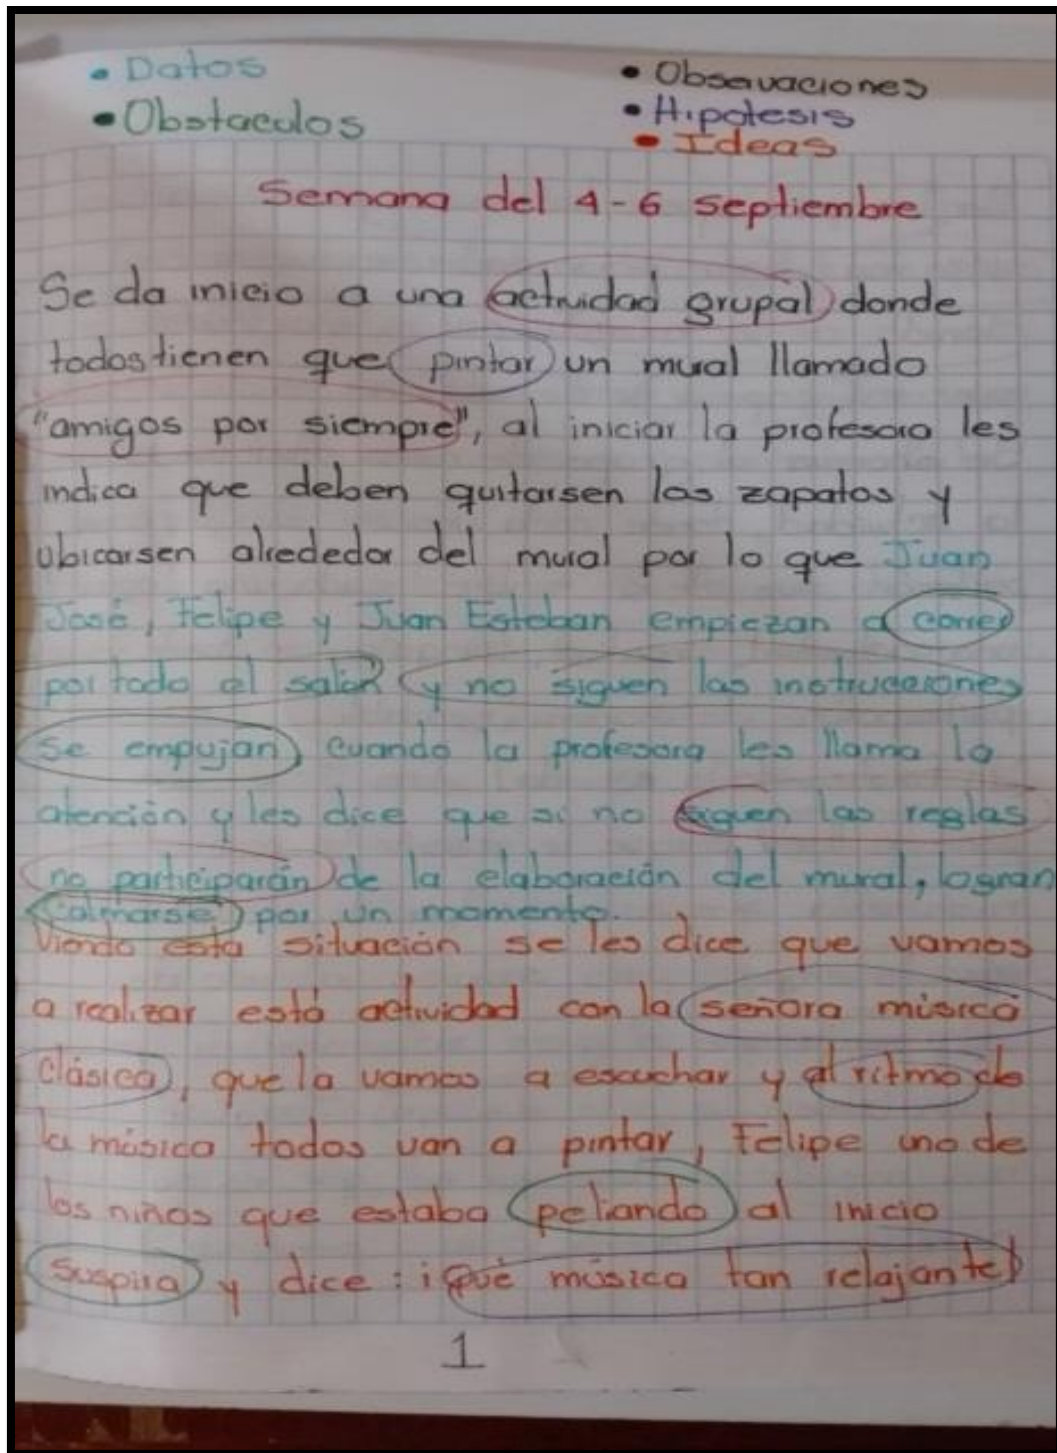 • Datos
• Obstaculos
• Observaciones
• Hipotesis
• Ideas
Semana del 4-6 septiembre
Se da inicio a una actividad grupal donde
todos tienen que pintar un mural llamado
"amigos por siempre", al iniciar la profesora les
indica que deben quitarsen los zapatos y
ubicarsen alrededor del mural por lo que Juan
José, Felipe y Juan Esteban empiezan a correr
por todo el salón y no siguen las instrucciones
se empujan, cuando la profesora les llama la
atención y les dice que si no siguen las reglas
no participarán de la elaboración del mural, logran
calmarse por un momento.
Viendo esta situación se les dice que vamos
a realizar está actividad con la señora música
clásica, que la vamos a escuchar y al ritmo de
la música todos van a pintar, Felipe uno de
los niños que estaba peliando al inicio
suspira y dice: ¡Qué música tan relajante!
1